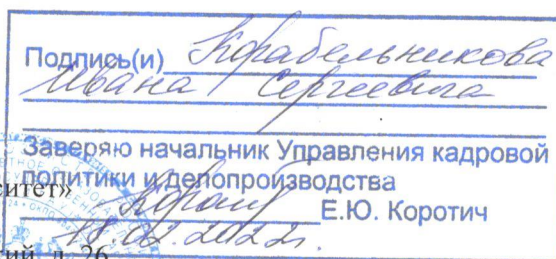 Подпись(и) Корабельникова
Ивана Сергеевича
Заверяю начальник Управления кадровой
политики и делопроизводства
ситет»
Е.Ю. Коротич
18.02.2022г.
д. 26